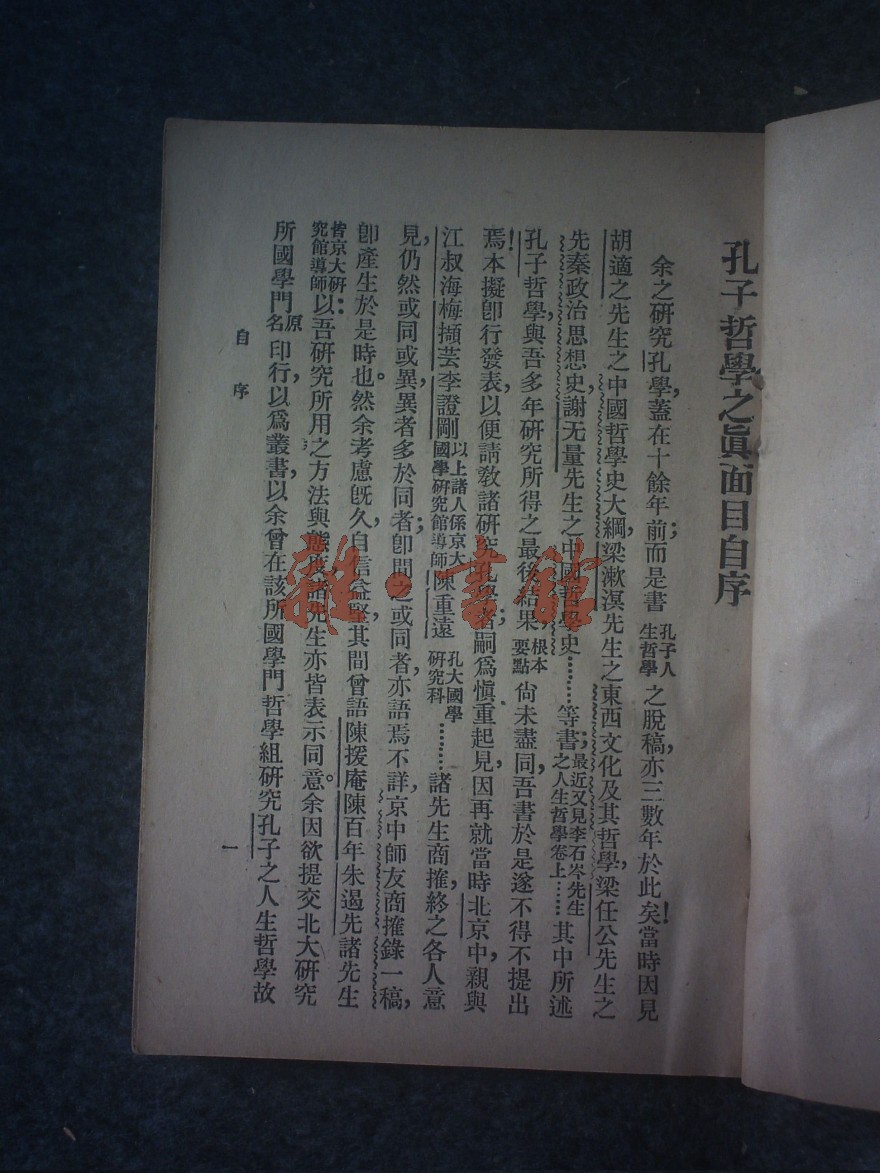 孔子哲學之眞面目自序
余之研究孔學，蓋在十餘年前；而是書孔子人生哲學之脫稿，亦三數年於此矣！當時因見
胡適之先生之中國哲學史大綱，梁漱溟先生之東西文化及其哲學，梁任公先生之
先秦政治思想史，謝无量先生之中國哲學史………等書；最近又見李石岑先生之人生哲學卷上……其中所述
孔子哲學，與吾多年研究所得之最後結果，根本要點尙未盡同，吾書於是遂不得不提出
焉！本擬卽行發表，以便請敎諸研究孔學者，嗣爲愼重起見，因再就當時北京中，親與
江叔海梅擷芸李證剛以上諸人係京大國學研究館導師陳重遠孔大國學研究科………諸先生商搉，終之各人意
見，仍然或同或異，異者多於同者；卽間之或同者，亦語焉不詳，京中師友商搉錄一稿，
卽產生於是時也。然余考慮旣久，自信益堅，其間曾語陳援庵陳百年朱逷先諸先生
皆京大研究館導師：以吾研究所用之方法與態度，諸先生亦皆表示同意。余因欲提交北大研究
所國學門原名印行，以爲叢書，以余曾在該所國學門哲學組研究孔子之人生哲學故
自序
一
雜·書館